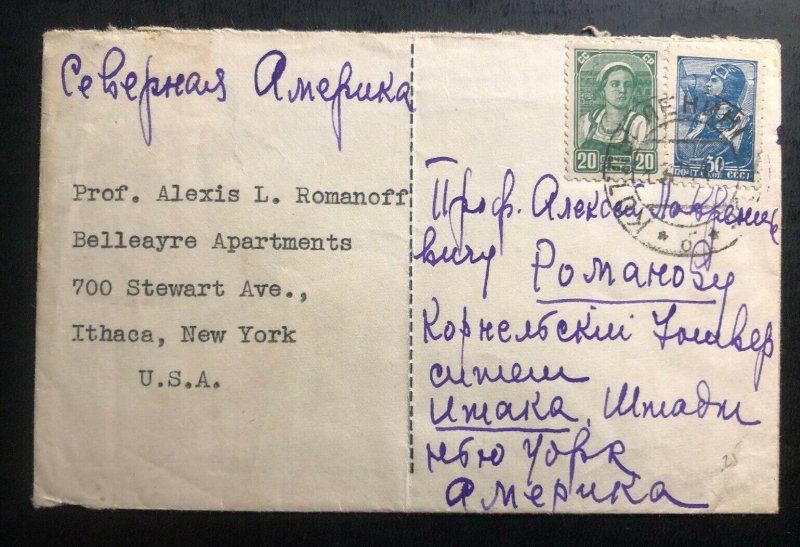 Северная Америка
Prof. Alexis L. Romanoff
Belleayre Apartments
700 Stewart Ave.,
Ithaca, New York
U.S.A.
СС СР
20 20
30
ПОЧТА СССР
Проф. Алексей Лавренть
вичу Романову
Корнельский Универ
ситет
Итака, Штадт
Нью Йорк
Америка
25